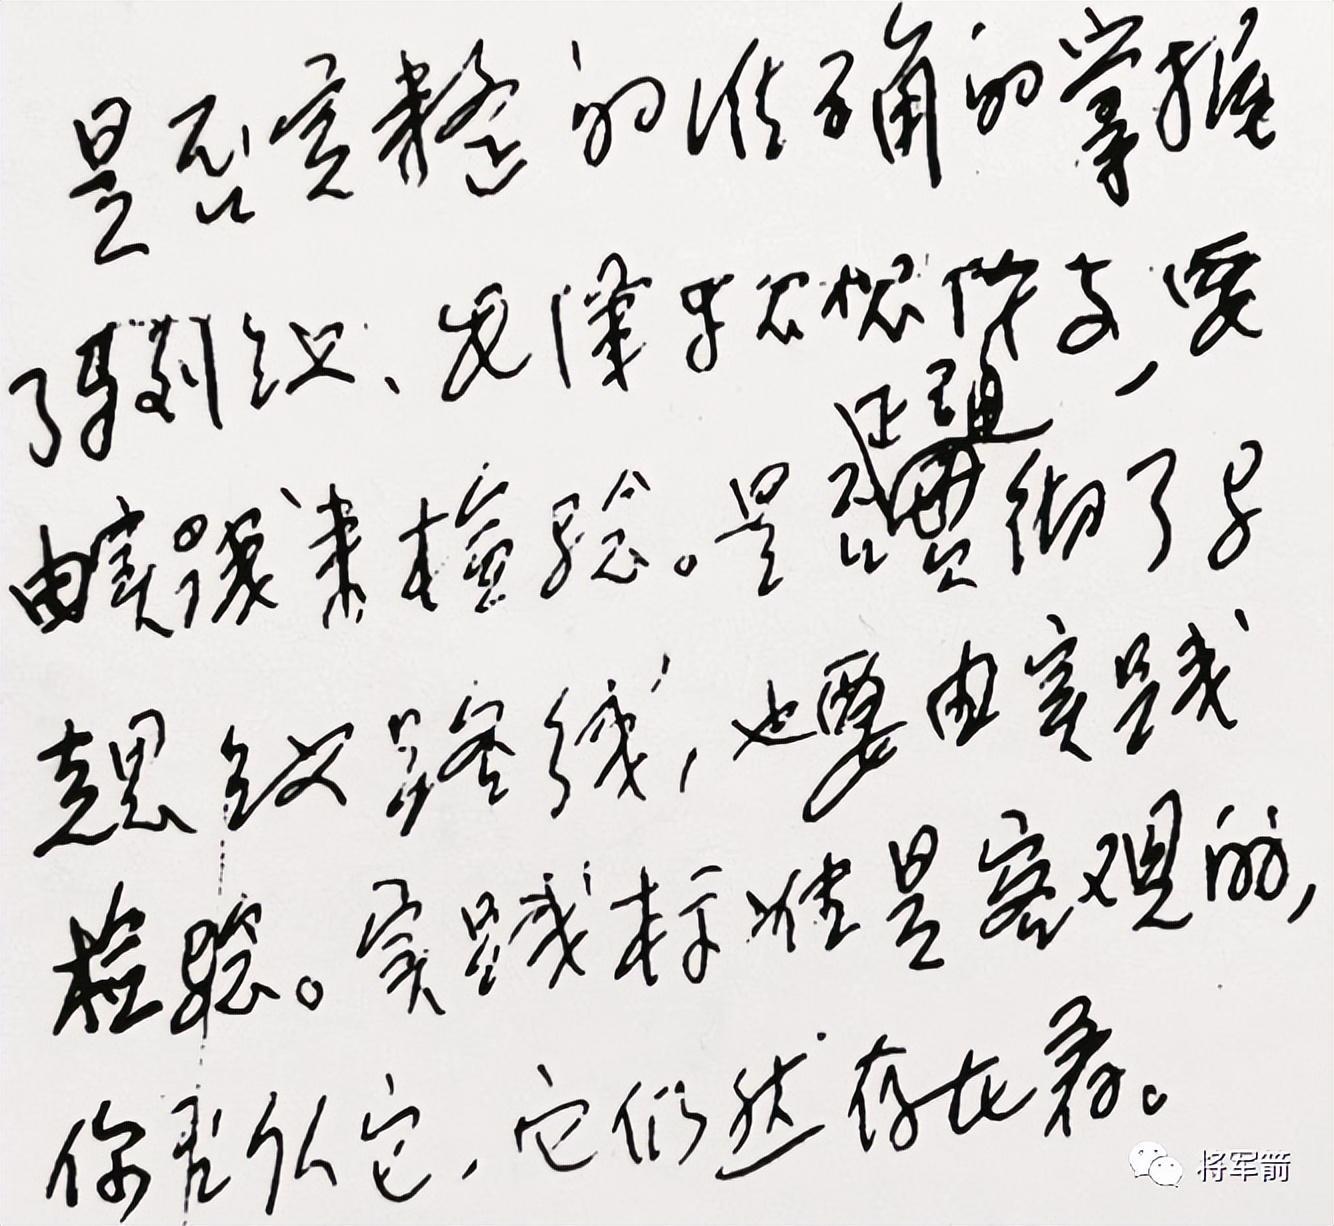 是否完整的准确的掌握
了马列主义、毛泽东思想体系,要
由实践来检验。是否贯彻了马
克思主义路线,也要由实践
检验。实践标准是客观的,
你否认它,它仍然存在着。
将军箭